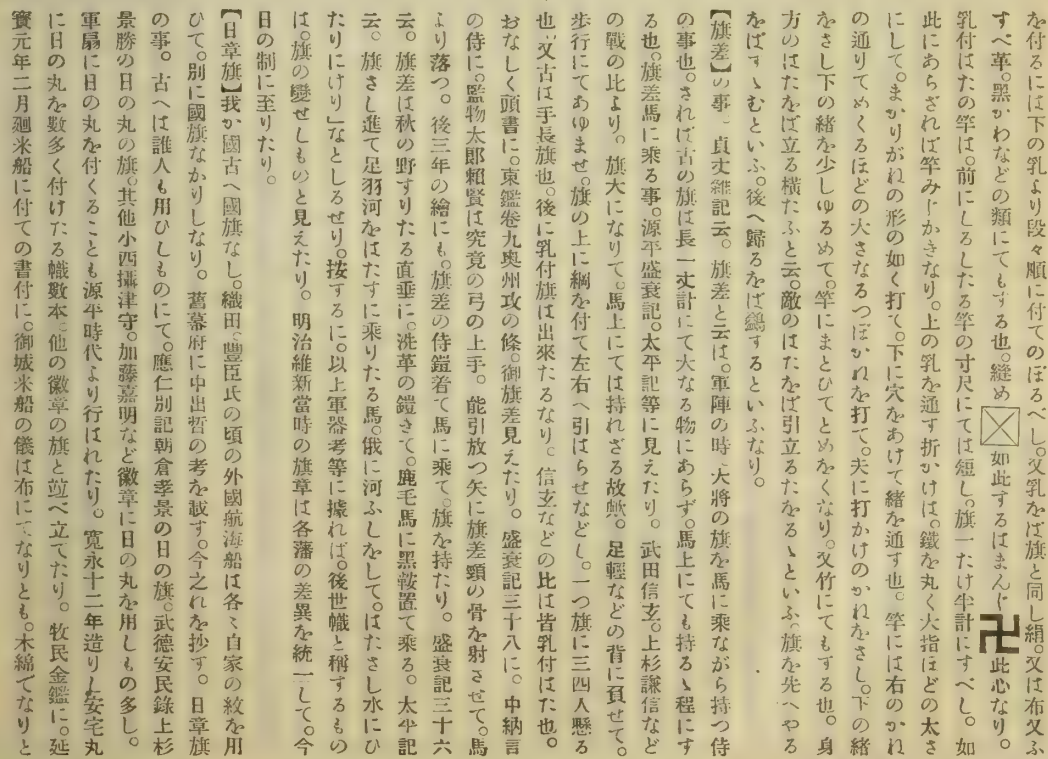 を付るには下の乳より段々順に付てのぼるべし。又乳をば旗と同し絹。又は布又ふ
すべ革。黑かわなどの類にてもする也。縫め如此するはまんじ卍此心なり。
乳付はたの竿は。前にしるしたる竿の寸尺にては短し。旗一たけ半計にすべし。如
此にあらざれば竿みじかきなり。上の乳を通す折かけは。鐵を丸く大指ほどの太さ
にして。まかりがねの形の如く打て。下に穴をあけて緒を通す也。竿には右のかね
の通りてめくるほどの大さなるつぼかねを打て。夫に打かけのかねをさし。下の緒
をさし下の緒を少しゆるめて。竿にまとひてとめをくなり。又竹にてもする也。身
方のはたをば立る橫たふと云。敵のはたをば引立るたをるゝといふ。旗を先へやる
をばすゝむといふ。後へ歸るをば鷁するといふなり。
【旗差】の事。貞丈雜記云。旗差と云は。軍陣の時。大將の旗を馬に乘ながら持つ侍
の事也。されば古の旗は長一丈計にて大なる物にあらず。馬上にても持るゝ程にす
る也。旗差馬に乘る事。源平盛衰記。太平記等に見えたり。武田信玄。上杉謙信など
の戰の比より。旗大になりて。馬上にては持れざる故歟。足輕などの背に負せて。
步行にてあゆませ。旗の上に綱を付て左右へ引はらせなどし。一つ旗に三四人懸る
也。又古は手長旗也。後に乳付旗は出來たるなり。信玄などの比は皆乳付はた也。
おなしく頭書に。東鑑卷九奧州攻の條。御旗差見えたり。盛衰記三十八に。中納言
の侍に。監物太郎賴賢は究竟の弓の上手。能引放つ矢に旗差頸の骨を射させて。馬
より落つ。後三年の繪にも。旗差の侍鎧着て馬に乘て。旗を持たり。盛衰記三十六
云。旗差は秋の野すりたる直垂に。洗革の鎧きて。鹿毛馬に黑鞍置て乘る。太平記
云。旗さし進て足羽河をはたすに乘りたる馬。俄に河ふしをして。はたさし水にひ
たりにけり」なとしるせり。按するに。以上軍器考等に據れば。後世幟と稱するもの
は。旗の變せしものと見えたり。明治維新當時の旗章は各藩の差異を統一して。今
日の制に至りたり。
【日章旗】我か國古へ國旗なし。織田。豐臣氏の頃の外國航海船は各々自家の紋を用
ひて。別に國旗なかりしなり。舊幕府に中出哲の考を載す。今之れを抄す。日章旗
の事。古へは誰人も用ひしものにて。應仁別記朝倉孝景の日の旗。武德安民錄上杉
景勝の日の丸の旗。其他小西攝津守。加藤嘉明など徽章に日の丸を用しもの多し。
軍扇に日の丸を付くることも源平時代より行はれたり。寬永十二年造りし安宅丸
に日の丸を數多く付けたる幟數本。他の徽章の旗と竝べ立てたり。牧民金鑑に。延
寶元年二月廻米船に付ての書付に。御城米船の儀は布にてなりとも。木綿でなりと